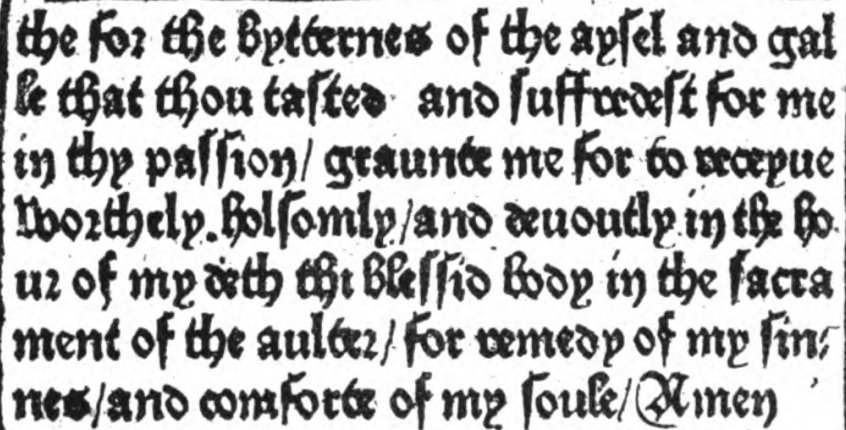 the for the bytternes of the aysel and gal
le that thou tasted and suffredest for me
in thy passion/ graunte me for to receyue
worthely. holsomly/and deuoutly in the ho
ur of my deth thi blessid body in the sacra
ment of the aulter/ for remedy of my sin-
nes/and comforte of my soule/Amen